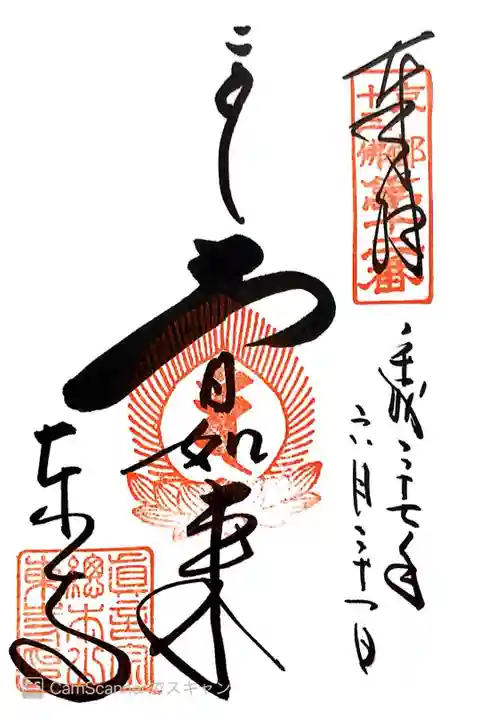 奉拝
京都
十三佛
第十二番
平成二十七年
六月二十一日
大日如来
東寺
眞言宗
總本山
CamScannerでスキャン